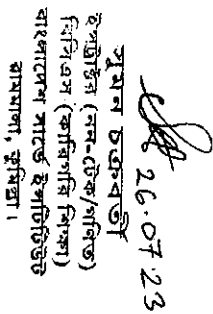 26.07.23
সুমন চক্রবর্তী
ইন্সট্রাক্টর (নন-টেক/গণিত)
বিসিএস (কারিগরি শিক্ষা)
বাংলাদেশ সার্ভে ইন্সটিটিউট
রামমালা, কুমিল্লা।